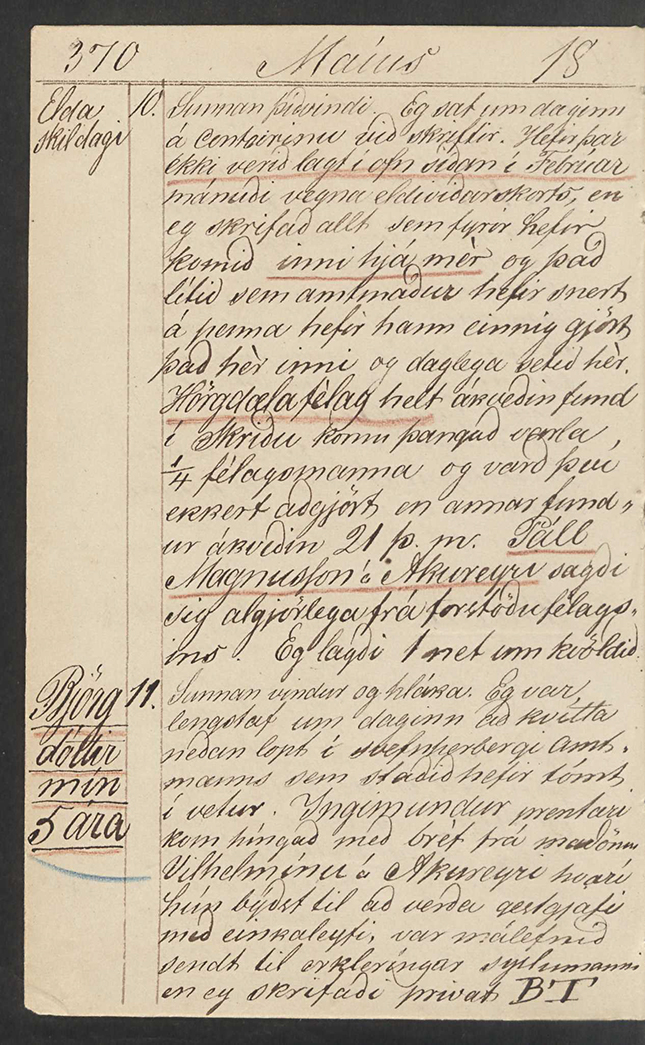 370 Maíus 18
Elda
skildagi
10. Sunnan þídvindi. Eg sat um daginn
á Contóirinu vid skriftir. Hefir þar
ekki verid lagt í ofn sídan í Februar
mánudi vegna eldividarskorts, en
eg skrifad allt sem fyrir hefir
komid inni hjá mèr og þad
lítid sem amtmadur hefir snert
á penna hefir hann einnig gjört
það hèr inni og daglega setid hèr.
Hörgdælafèlag helt ákvedinn fund
í Skridu komu þangad varla
1/4 fèlagsmanna og vard því
ekkert adgjört en annar fund„
ur ákvedin 21 þ. m. Páll
Magnusson á Akureyri sagdi
sig algjörlega frá forstödu fèlags„
ins. Eg lagdi 1 net um kvöldid.
Björg
dóttir
mín
5 ára
11. Sunnan vindur og hláka. Eg var
lengstaf um daginn ad kvitta
nedan lopt í svefnherbergi amt„
manns sem stadid hefir tómt
í vetur. Ingimundur prentari
kom híngad med bref frá madömu
Vilhelmínu á Akureyri hvarí
hún býdst til ad verda gestgjafi
med einkaleyfi, var málefnid
sendt til erkleríngar sýslumanni
en eg skrifadi privat BT